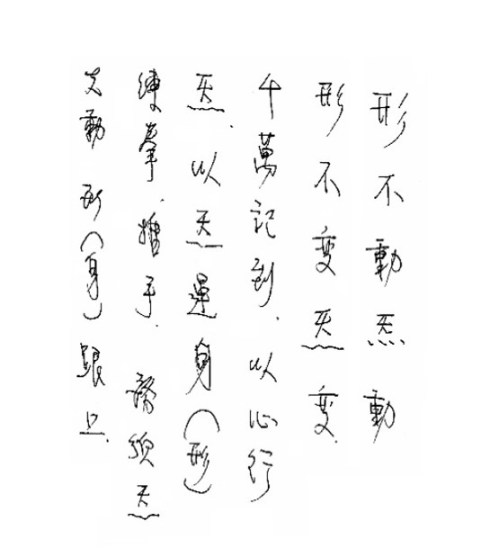 形不動炁動
形不变炁变.
千萬記到、以心行
炁、以炁運身(形)
練拳、手、務須炁
先動形(身)跟上.